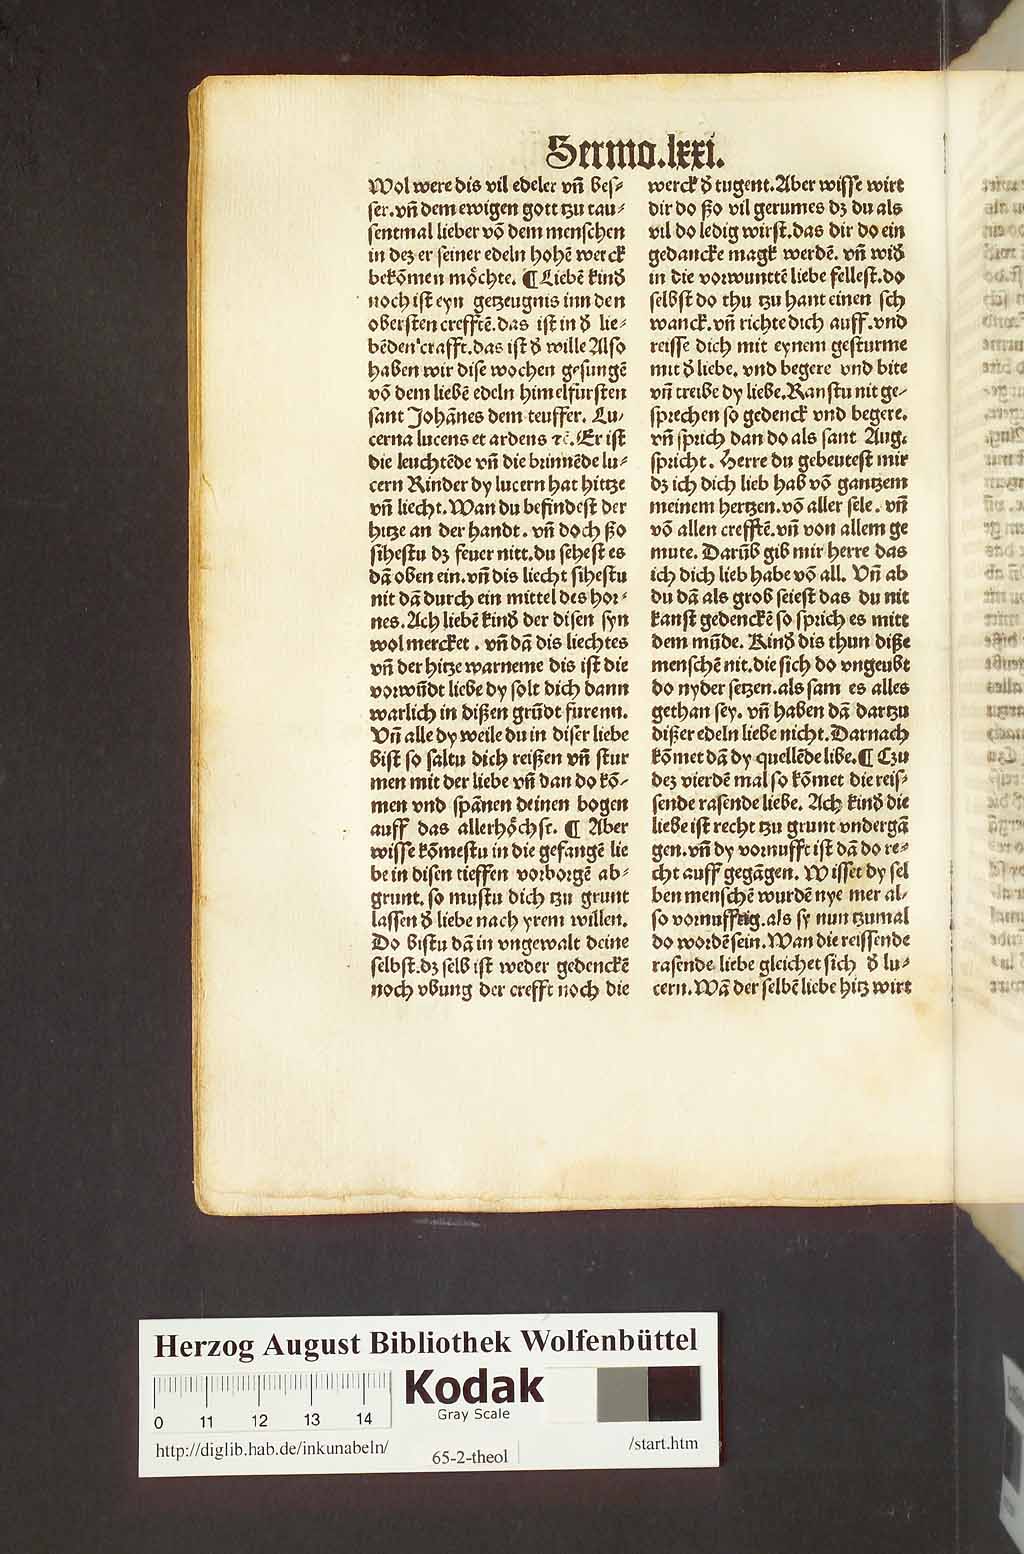 Sermo.lxxi.
Wol were dis vil edeler vñ bes⸗
ser.vñ dem ewigen gott tzu tau⸗
sentmal lieber vō dem menschen
in dez er seiner edeln hohē werck
bekōmen mo̊chte. ¶ Liebē kindꝰ
noch ist eyn getzeugnis inn den
obersten crefftē.das ist in đ lie⸗
bēden crafft.das ist đ wille Also
haben wir dise wochen gesungē
vō dem liebē edeln himelfursten
sant Johānes dem teuffer. Lu⸗
cerna lucens et ardens ⁊c̄. Er ist
die leuchtēde vñ die brinnēde lu⸗
cern Kinder dy lucern hat hittze
vñ liecht.Wan du befindest der
hitze an der handt. vñ doch ßo
sihestu dz feuer nitt.du sehest es
dā oben ein.vñ dis liecht sihestu
nit dā durch ein mittel des hor⸗
nes.Ach liebē kindꝰ der disen syn
wol mercket. vñ dā dis liechtes
vñ der hitze warneme dis ist die
vorwūdt liebe dy solt dich dann
warlich in dißen grūdt furenn.
Vñ alle dy weile du in diser liebe
bist so saltu dich reißen vñ stur
men mit der liebe vñ dan do kō⸗
men vnd spānen deinen bogen
auff das allerho̊chst. ¶ Aber
wisse kōmestu in die gefangē lie
be in disen tieffen vorborgē ab⸗
grunt. so mustu dich tzu grunt
lassen đ liebe nach yrem willen.
Do bistu dā in vngewalt deine
selbst.dz selb ist weder gedenckē
noch vbung der crefft noch die
werck đ tugent.Aber wisse wirt
dir do ßo vil gerumes dz du als
vil do ledig wirst.das dir do ein
gedancke magk werdē. vñ widꝰ
in die vorwunttē liebe fellest.do
selbst do thu tzu hant einen sch
wanck.vñ richte dich auff.vnd
reisse dich mit eynem gesturme
mit đ liebe. vnd begere vnd bite
vñ treibe dy liebe.Kanstu nit ge⸗
sprechen so gedenck vnd begere.
vñ sprich dan do als sant Aug.
spricht. Herre du gebeutest mir
dz ich dich lieb hab vō gantzem
meinem hertzen.vō aller sele. vñ
vō allen crefftē.vñ von allem ge
mute. Darūb gib mir herre das
ich dich lieb habe vō all. Vñ ab
du dā als grob seiest das du nit
kanst gedenckē so sprich es mitt
dem mūde. Kindꝰ dis thun diße
menschē nit.die sich do vngeubt
do nyder setzen.als sam es alles
gethan sey. vñ haben dā dartzu
dißer edeln liebe nicht.Darnach
kōmet dā dy quellēde libe.¶ Czu
dez vierdē mal so kōmet die reis⸗
sende rasende liebe. Ach kindꝰ die
liebe ist recht tzu grunt vndergā
gen.vñ dy vornufft ist dā do re⸗
cht auff gegāgen. Wisset dy sel
ben menschē wurdē nye mer al⸗
so vornufftig.als sy nun tzumal
do wordē sein.Wan die reissende
rasende liebe gleichet sich đ lu⸗
cern.Wā der selbē liebe hitz wirt
Herzog August Bibliothek Wolfenbüttel
Kodak
Gray Scale
0 11 12 13 14
http://diglib.hab.de/inkunabeln/
65-2-theol
/start.htm